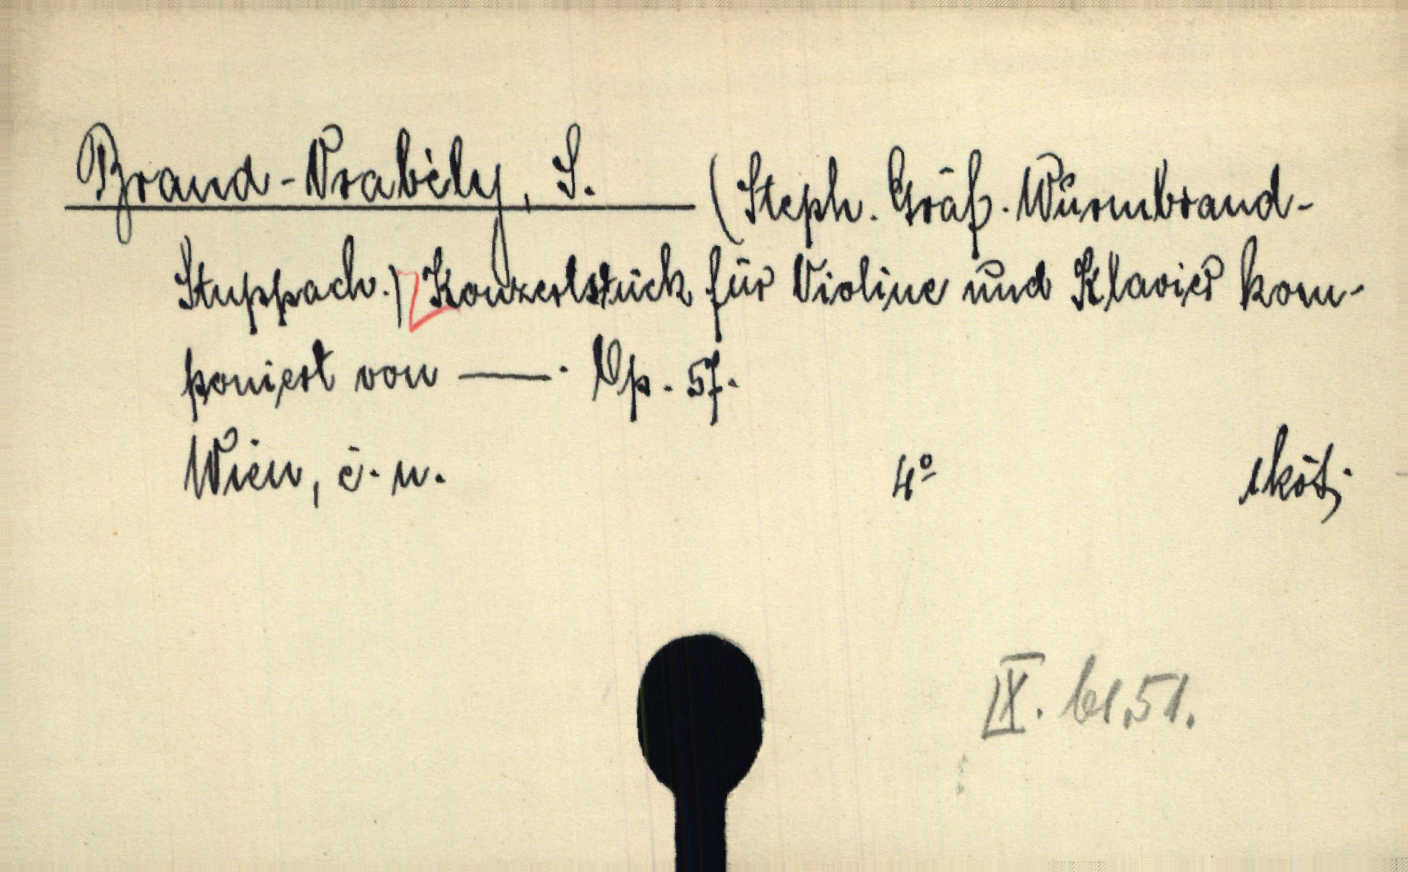 Brand-Vrabély, S. (Steph. Gräf. Wurmbrand-
Stuppach.) Konzertstück für Violine und Klavier kom-
poniert von ——. Op. 57.
Wien, é. n. 4° 1 köt.
IX.